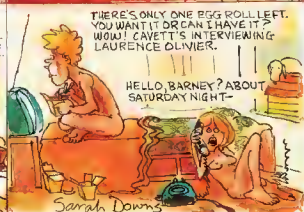 THERE'S ONLY ONE EGG ROLL LEFT.
YOU WANT IT OR CAN I HAVE IT?
WOW! CAVETT'S INTERVIEWING
LAURENCE OLIVIER.
HELLO, BARNEY? ABOUT
SATURDAY NIGHT—
Sarah Downs